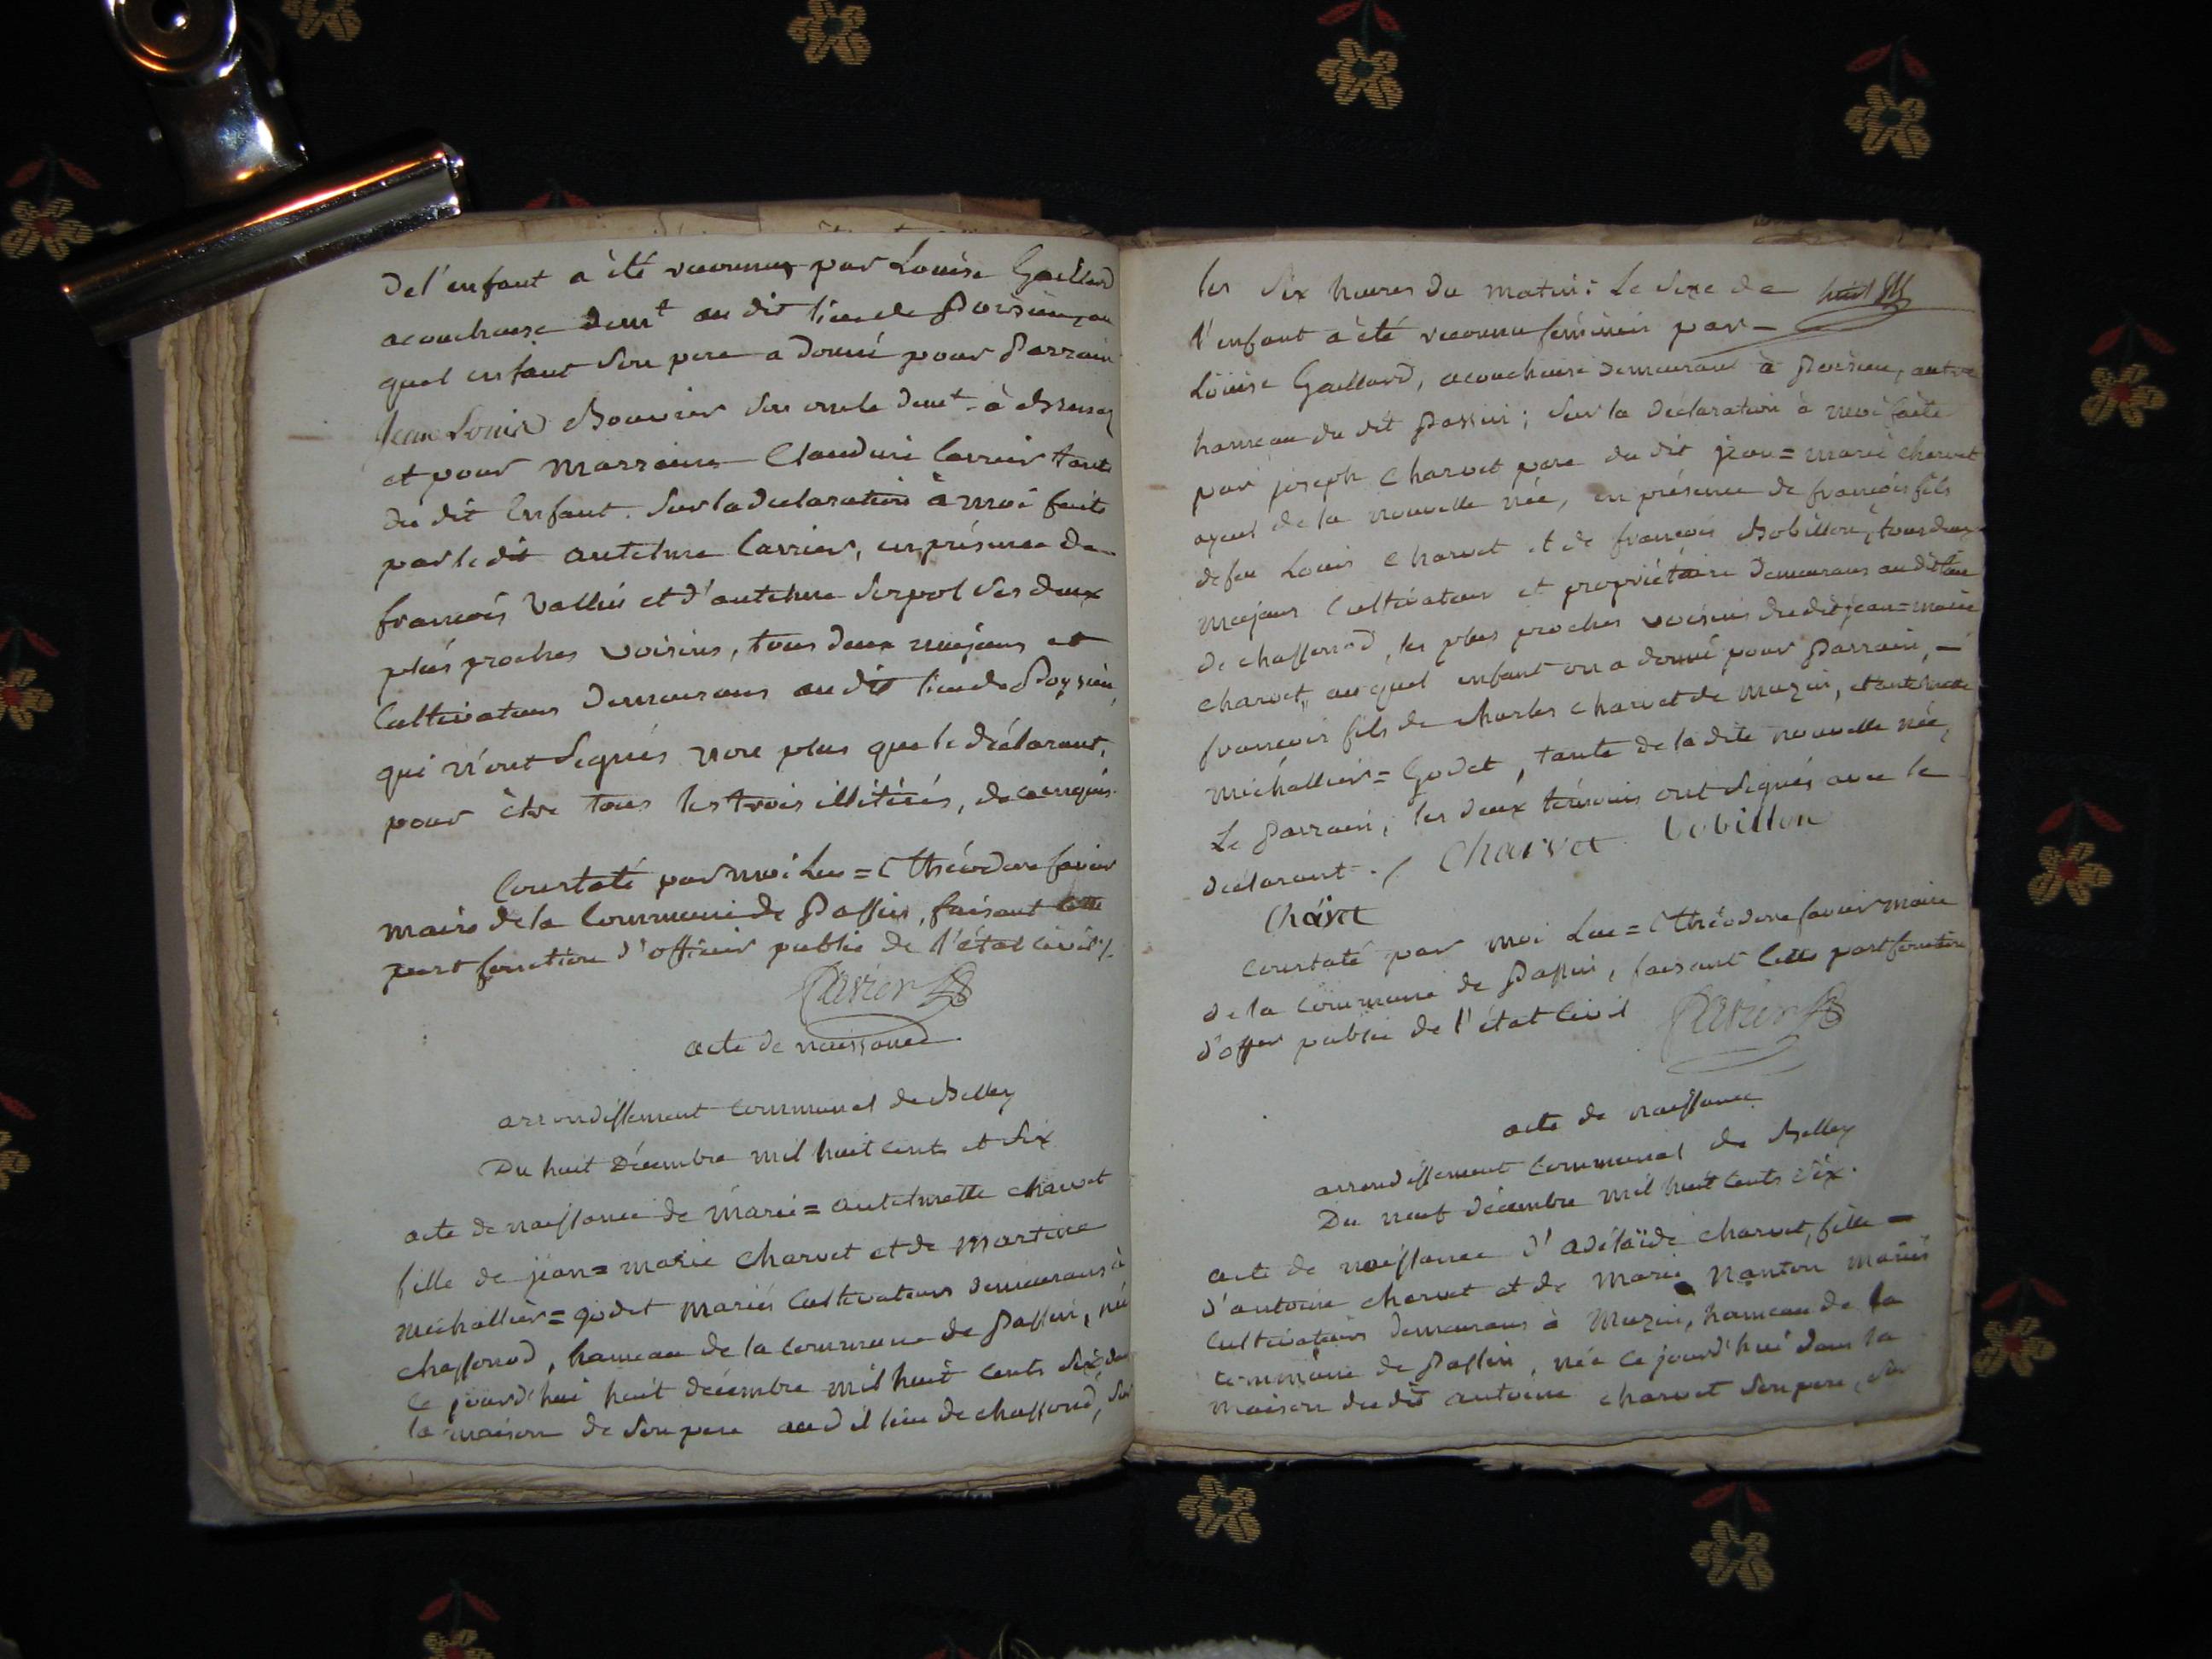 de l'enfant a été reconnu par Louise Gaillard
acoucheuse demt au dit lieu de Poisieu, au
quel enfant son pere a donné pour Parrain
Jean Louis Bouvier son oncle demt à
et pour Marraine Claudine Carrier tante
du dit Enfant. Sur la déclaration à moi faite
par le dit antelme Carrier, en présence de
françois Vallin et d'antelme Serpol ses deux
plus proches voisins, tous deux majeurs et
Cultivateurs demeurans au dit lieu de Poysieu
qui n'ont signés non plus que le déclarant,
pour être tous les trois illitérés, de ce enquis.
Constaté par moi Luc = Théodore favier
maire de la Commune de Passin, faisant cette
part fonction d'officier public de l'état civil ./.
Favier
acte de naissance
arrondissement communal de Belley
Du huit Décembre mil huit cents et six
acte de naissance de marie = antelmette charvet
fille de jean = marie charvet et de martine
michallier = godet mariés cultivateurs demeurans à
chassonod, hameau de la commune de Passin, née
ce jourd'hui huit décembre mil huit cents six, dans
la maison de son pere audit lieu de chassonod, sur
les six heures du matin: Le sexe de
l'enfant a été reconnu féminin par
Louise Gaillard, acoucheuse demeurant à Poisieu, autre
hameau du dit Passin; sur la déclaration à moi faite
par joseph charvet pere du dit jean = marie charvet
ayeul de la nouvelle née, en présence de françois fils
de feu Louis charvet et de françois Bobillon, tous deux
majeurs Cultivateur et propriétaire demeurans au dit lieu
de chassonod, les plus proches voisins du dit jean = marie
charvet, auquel enfant on a donné pour Parrain,
françois fils de charles charvet de muzin, et antelmette
michallier = Godet, tante de la dite nouvelle née,
Le Parrain, les deux témoins ont signés avec le
déclarant ./ Charvet bobillon
Charvet
Constaté par moi Luc = Théodore favier maire
de la commune de Passin, faisant cette part fonction
d'offer public de l'état civil Favier
acte de naissance
arrondissement communal de Belley
Du neuf décembre mil huit cents six.
acte de naissance d'adélaïde charvet, fille
d'antoine charvet et de marie Nanton mariés
cultivateurs demeurans à Muzin, hameau de la
commune de Passin, née ce jourd'hui dans la
maison du dit antoine charvet son pere, sur